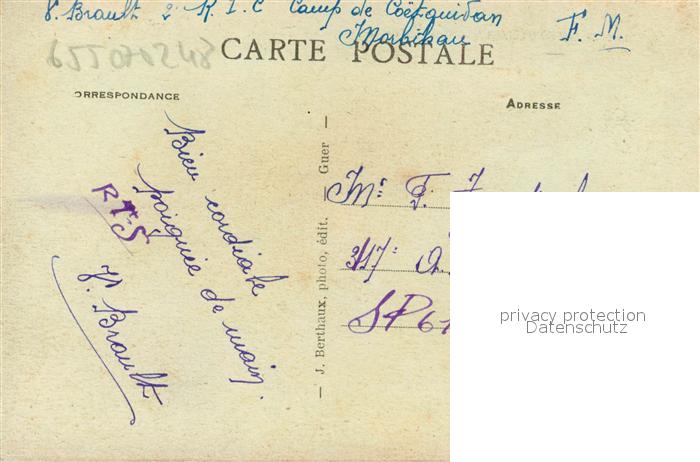 P. Brault 2e R.I.C Camp de Coëtquidan
Morbihan
F. M.
655070248
CARTE POSTALE
ORRESPONDANCE
ADRESSE
Bien cordiale
poignée de main.
P. Brault
J. Berthaux, photo, édit. — Guer —
Mr F.
SP 61
privacy protection
Datenschutz